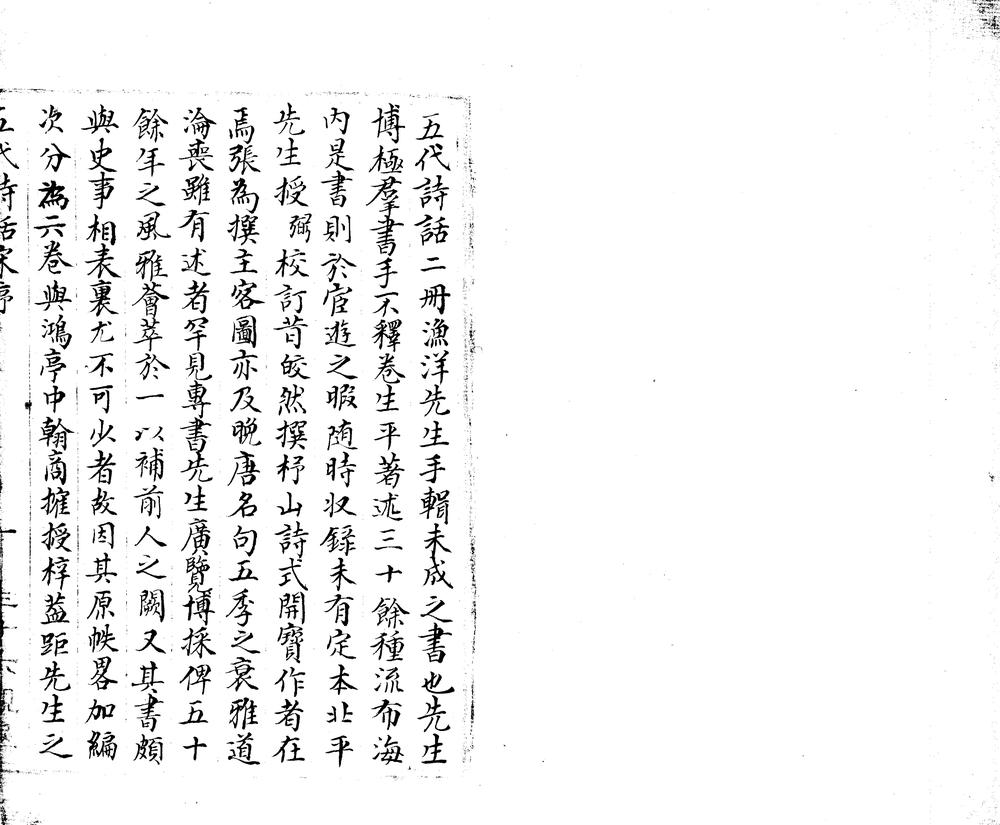 五代詩話二冊漁洋先生手輯未成之書也先生
博極羣書手不釋卷生平著述三十餘種流布海
內是書則於宦遊之暇随時収錄未有定本北平
先生授弼校訂昔皎然撰杼山詩式開寶作者在
焉張為撰主客圖亦及晚唐名句五季之衰雅道
淪喪雖有述者罕見專書先生廣覽博採俾五十
餘年之風雅薈萃於一以補前人之闕又其書頗
與史事相表裏尤不可少者故因其原帙畧加編
次分為六卷與鴻亭中翰商搉授梓葢距先生之
五代詩話宋序 一